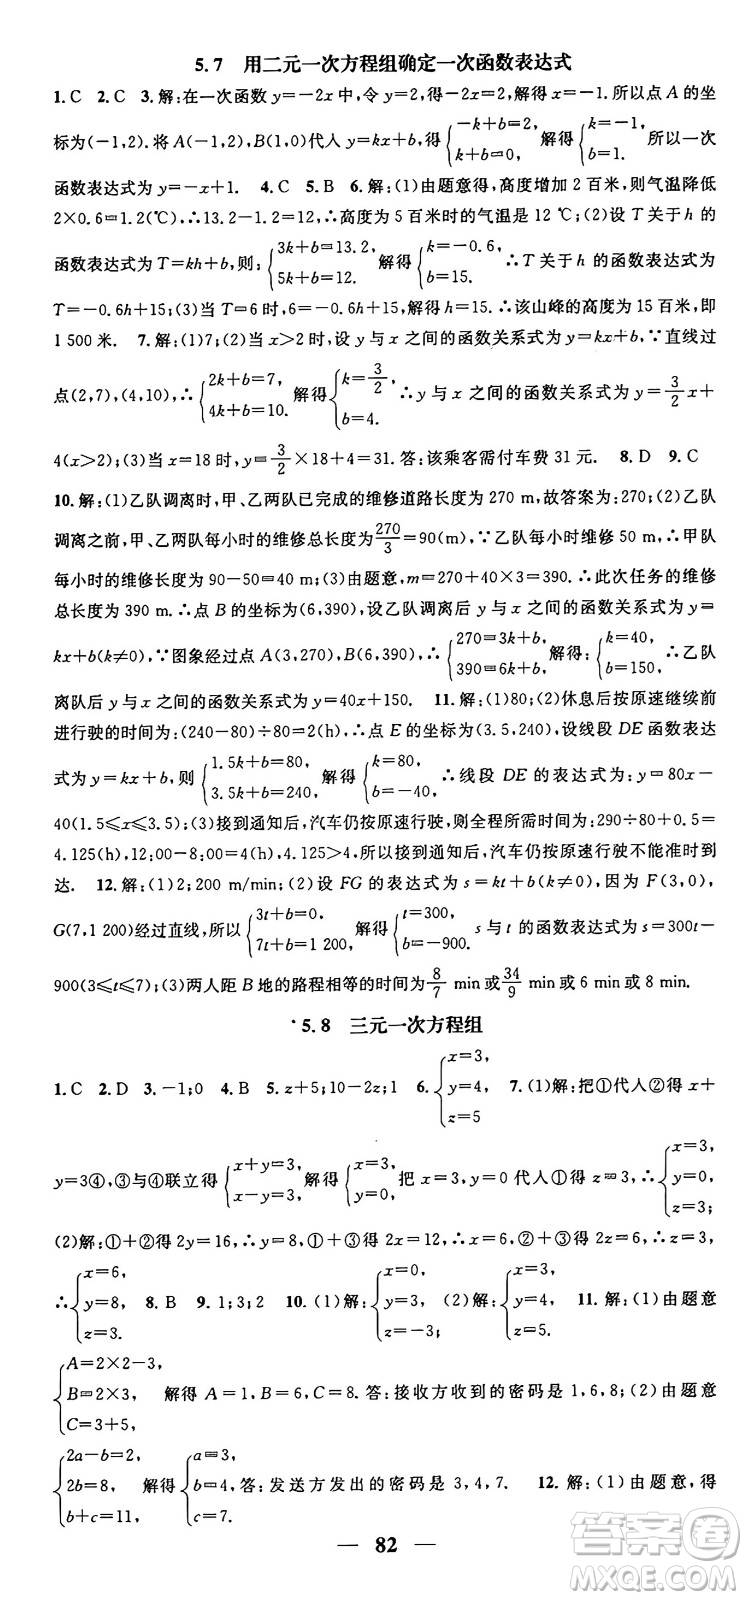 5.7 用二元一次方程组确定一次函数表达式
1.C 2.C 3.解:在一次函数 y=-2x 中,令 y=2,得-2x=2,解得 x=-1.所以点 A 的坐
标为(-1,2).将 A(-1,2),B(1,0)代人 y=kx+b,得{-k+b=2, k+b=0, 解得{k=-1, b=1. 所以一次
函数表达式为 y=-x+1. 4.C 5.B 6.解:(1)由题意得,高度增加 2 百米,则气温降低
2×0.6=1.2(℃),∴13.2-1.2=12,∴高度为 5 百米时的气温是 12 ℃;(2)设 T 关于 h 的
函数表达式为 T=kh+b,则:{3k+b=13.2, 5k+b=12. 解得{k=-0.6, b=15. ∴T 关于 h 的函数表达式为
T=-0.6h+15;(3)当 T=6 时,6=-0.6h+15,解得 h=15,∴该山峰的高度为 15 百米,即
1 500 米. 7.解:(1)7;(2)当 x>2 时,设 y 与 x 之间的函数关系式为 y=kx+b,∵直线过
点(2,7),(4,10),∴{2k+b=7, 4k+b=10. 解得{k=3/2, b=4. ∴y 与 x 之间的函数关系式为 y=3/2x+
4(x>2);(3)当 x=18 时,y=3/2×18+4=31.答:该乘客需付车费 31 元. 8.D 9.C
10.解:(1)乙队调离时,甲、乙两队已完成的维修道路长度为 270 m,故答案为:270;(2)乙队
调离之前,甲、乙两队每小时的维修总长度为270/3=90(m),∵乙队每小时维修 50 m,∴甲队
每小时的维修长度为 90-50=40 m;(3)由题意,m=270+40×3=390.∴此次任务的维修
总长度为 390 m.∴点 B 的坐标为(6,390),设乙队调离后 y 与 x 之间的函数关系式为 y=
kx+b(k≠0),∵图象经过点 A(3,270),B(6,390),∴{270=3k+b, 390=6k+b. 解得:{k=40, b=150. ∴乙队
离队后 y 与 x 之间的函数关系式为 y=40x+150. 11.解:(1)80;(2)休息后按原速继续前
进行驶的时间为:(240-80)÷80=2(h),∴点 E 的坐标为(3.5,240),设线段 DE 函数表达
式为 y=kx+b,则{1.5k+b=80, 3.5k+b=240, 解得{k=80, b=-40, ∴线段 DE 的表达式为:y=80x-
40(1.5≤x≤3.5);(3)接到通知后,汽车仍按原速行驶,则全程所需时间为:290÷80+0.5=
4.125(h),12:00-8:00=4(h),4.125>4.所以接到通知后,汽车仍按原速行驶不能准时到
达. 12.解:(1)2;200 m/min;(2)设 FG 的表达式为 s=kt+b(k≠0),因为 F(3,0),
G(7,1 200)经过直线,所以{3t+b=0, 7t+b=1 200. 解得{t=300, b=-900. s 与 t 的函数表达式为 s=300t-
900(3≤t≤7);(3)两人距 B 地的路程相等的时间为8/7 min 或34/9 min 或 6 min 或 8 min.
5.8 三元一次方程组
1.C 2.D 3.-1;0 4.B 5.z+5;10-2z;1 6.{x=3, y=4, z=5 7.(1)解:把①代人②得 x+
y=3④,③与④联立得{x+y=3, x-y=3, 解得{x=3, y=0. 把 x=3,y=0 代人①得 z=3,∴{x=3, y=0, z=3.
(2)解:①+②得 2y=16,∴y=8,①+③得 2x=12,∴x=6,②+③得 2z=6,∴z=3,
∴{x=6, y=8, z=3. 8.B 9.1;3;2 10.(1)解:{x=0, y=4, z=-3; (2)解:{x=3, y=4, z=5. 11.解:(1)由题意
{A=2×2-3, B=2×3, C=3+5, 解得 A=1,B=6,C=8.答:接收方收到的密码是 1,6,8;(2)由题意
{2a-b=2, 2b=8, b+c=11, 解得{a=3, b=4, c=7. 答:发送方发出的密码是 3,4,7. 12.解:(1)由题意,得
— 82 —
答案圈